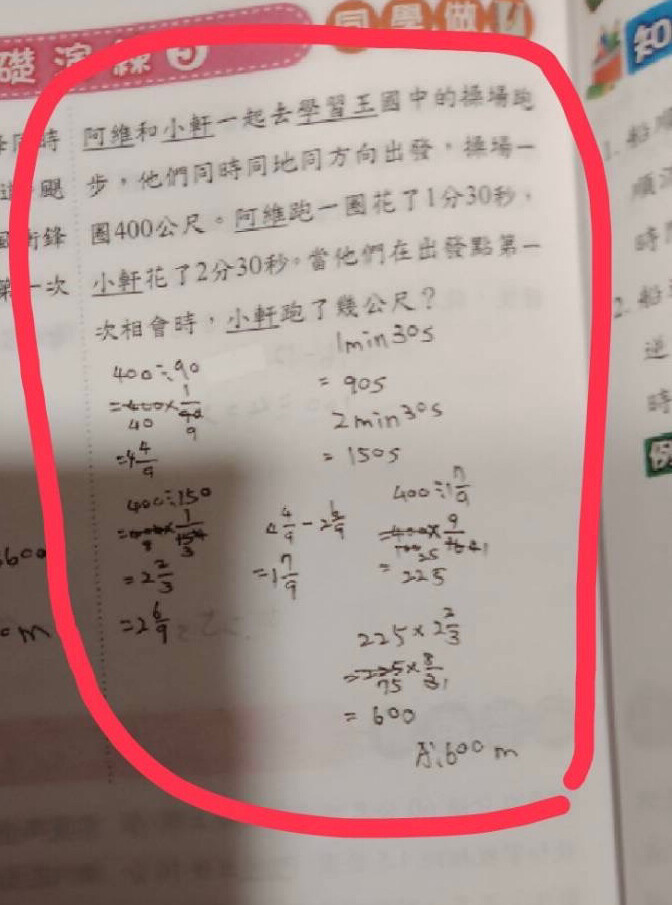 礎演練 5
同學做
知
阿維和小軒一起去學習王國中的操場跑
步，他們同時同地同方向出發，操場一
圈400公尺。阿維跑一圈花了1分30秒，
小軒花了2分30秒。當他們在出發點第一
次相會時，小軒跑了幾公尺？
時
颶
衝鋒
第一次
600
m
1min30s
= 90s
2min30s
= 150s
400÷90
=400×1/90
40
9
=4 4/9
400÷150
=400×1/150
8
3
=2 2/3
=2 6/9
4 4/9 - 2 6/9
=1 7/9
400÷1 7/9
=400×9/16
25
1
= 225
225×2 2/3
=225×8/3
75
1
= 600
A:600 m
1. 船
順
時
2. 船
逆
時
例